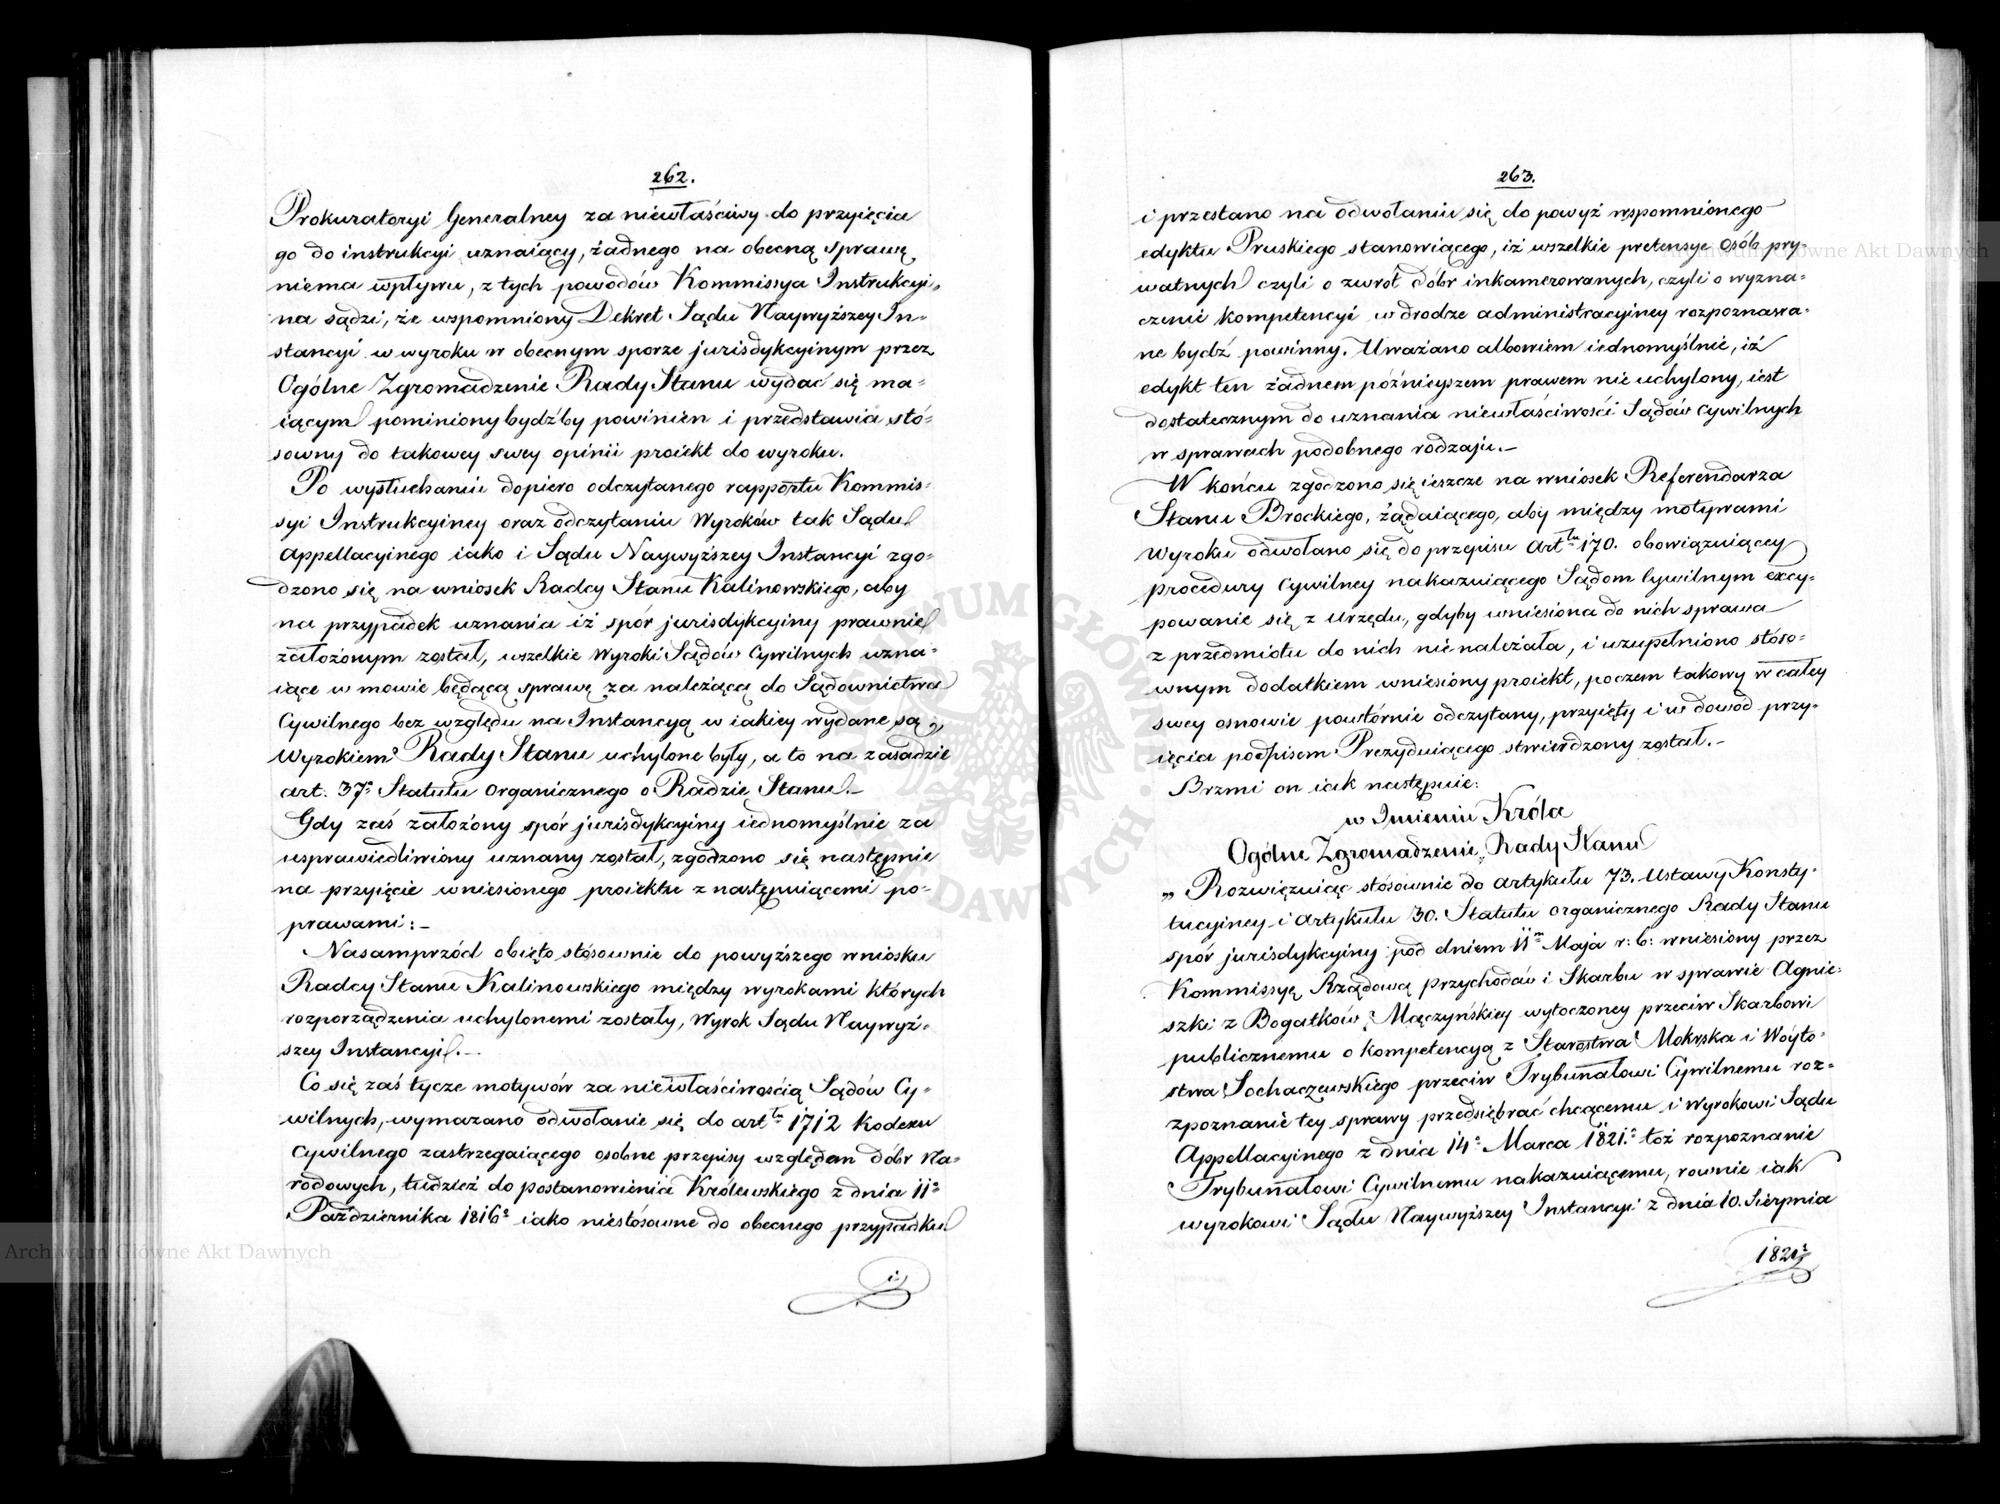 262.
Prokuratoryi Generalney za niewłaściwy do przyięcia
go do instrukcyi uznaiący, żadnego na obecną sprawę
niema wpływu, z tych powodów Kommissya Instrukcyi-
na sądzi, że wspomniony Dekret Sądu Naywyższey In-
stancyi w wyroku w obecnym sporze jurisdykcyinym przez
Ogólne Zgromadzenie Rady Stanu wydać się ma-
iącym pominiony bydźby powinien i przedstawia stó-
sowny do takowey swey opinii proiekt do wyroku.
Po wysłuchaniu dopiero odczytanego rapportu Kommis-
syi Instrukcyiney oraz odczytaniu Wyroków tak Sądu
Appellacyinego iako i Sądu Naywyższey Instancyi zgo-
dzono się na wniosek Radcy Stanu Kalinowskiego, aby
na przypadek uznania iż spór jurisdykcyiny prawnie
założonym został, wszelkie Wyroki Sądów Cywilnych uzna-
iące w mowie będącą sprawę za należącą do Sądownictwa
Cywilnego bez względu na Instancyą w iakiey wydane są,
Wyrokiem Rady Stanu uchylone były, a to na zasadzie
art. 37º Statutu Organicznego o Radzie Stanu.-
Gdy zaś założony spór jurisdykcyiny iednomyślnie za
usprawiedliwiony uznany został, zgodzono się następnie
na przyięcie wniesionego proiektu z następuiącemi po-
prawami:-
Nasamprzód obięto stósownie do powyższego wniosku
Radcy Stanu Kalinowskiego między wyrokami których
rozporządzenia uchylonemi zostały, Wyrok Sądu Naywyż-
szey Instancyi.-
Co się zaś tycze motywów za niewłaściwością Sądów Cy-
wilnych, wymazano odwołanie się do art<sup>łu</sup> 1712 Kodexu
Cywilnego zastrzegaiącego osobne przepisy względem dóbr Na-
rodowych, tudzież do postanowienia Królewskiego z dnia 11º
Października 1816º iako niestósowne do obecnego przypadku
i
263.
i przestano na odwołaniu się do powyż wspomnionego
edyktu Pruskiego stanowiącego, iż wszelkie pretensye osób pry-
watnych czyli o zwrót dóbr inkamerowanych, czyli o wyzna-
czenie kompetencyi w drodze administracyiney rozpoznawa-
ne bydź powinny. Uważano albowiem iednomyślnie, iż
edykt ten żadnem późnieyszem prawem nie uchylony, iest
dostatecznym do uznania niewłaściwości Sądów Cywilnych
w sprawach podobnego rodzaju.-
W końcu zgodzono się ieszcze na wniosek Referendarza
Stanu Brockiego, żądaiącego, aby między motywami
Wyroku odwołano się do przepisu Art<sup>łu</sup> 170. obowiązuiącey
procedury Cywilney nakazuiącego Sądom Cywilnym excy-
powanie się z Urzędu, gdyby wniesiona do nich sprawa
z przedmiotu do nich nie należała, i uzupełniono stóso-
wnym dodatkiem wniesiony proiekt, poczem takowy w całey
swey osnowie powtórnie odczytany, przyięty i w dowód przy-
ięcia podpisem Prezyduiącego stwierdzony został.-
Brzmi on iak następuie:
w Imieniu Króla
Ogólne Zgromadzenie Rady Stanu
„Rozwięzuiąc stósownie do artykułu 73. Ustawy Konsty-
tucyiney i Artykułu 30. Statutu organicznego Rady Stanu
spór jurisdykcyiny pod dniem 11<sup>m</sup> Maja r: b: wniesiony przez
Kommissyę Rządową Przychodów i Skarbu w sprawie Agnie-
szki z Bogatków Mączyńskiey wytoczoney przeciw Skarbowi
publicznemu o kompetencyą z Starostwa Mokrska i Woyto-
stwa Sochaczewskiego przeciw Trybunałowi Cywilnemu roz-
zpoznanie tey sprawy przedsiębrać chcącemu i Wyrokowi Sądu
Appellacyinego z dnia 14º Marca 1821.º toż rozpoznanie
Trybunałowi Cywilnemu nakazuiącemu, rownie iak
wyrokowi Sądu Naywyższey Instancyi z dnia 10. Sierpnia
1821º
Archiwum Główne Akt Dawnych
Archiwum Główne Akt Dawnych
ARCHIWUM GŁÓWNE AKT DAWNYCH